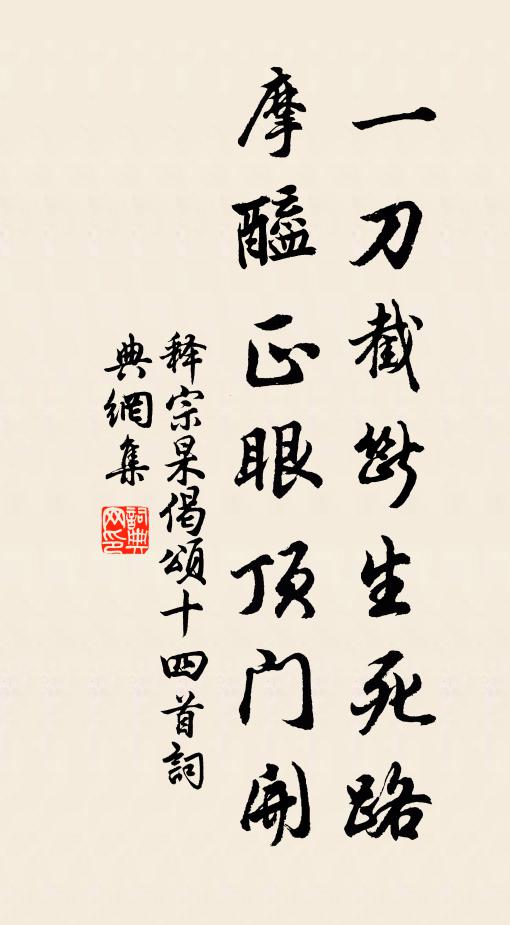 一刀截斷生死路
摩醯正眼顶门開
释宗杲偈頌十四首詞
典網集
詞典
网印